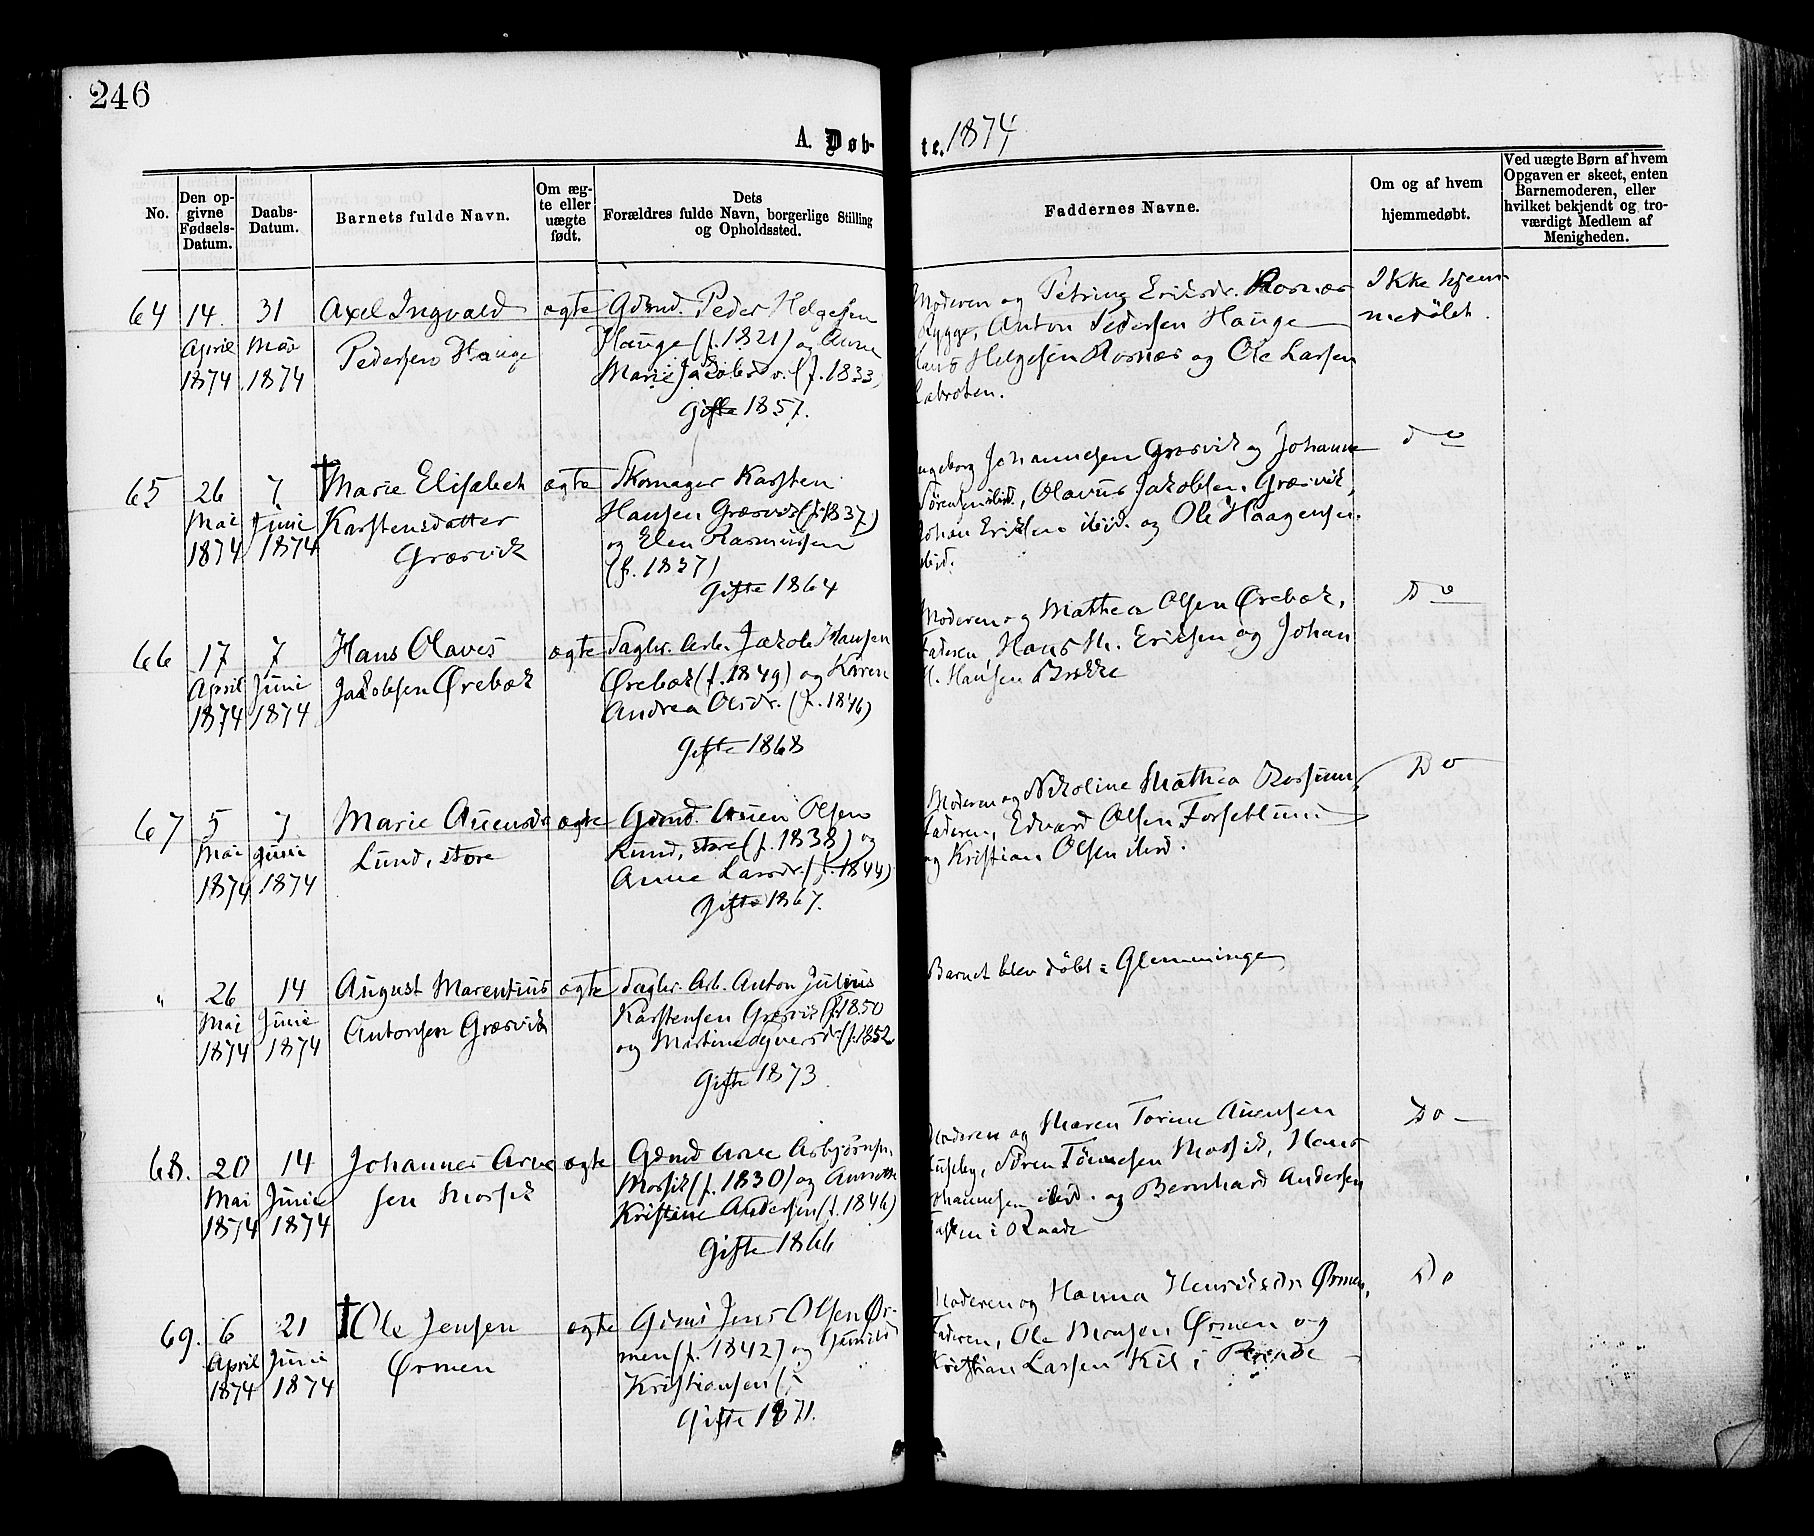 246
A. Døb-
te. 1874
No.
Den op-
givne
Fødsels-
Datum.
Daabs-
Datum.
Barnets fulde Navn.
Om æg-
te eller
uægte
født.
Dets
Forældres fulde Navn, borgerlige Stilling
og Opholdssted.
Faddernes Navne.
Om og af hvem
hjemmedøbt.
Ved uægte Børn af hvem
Opgaven er skeet, enten
Barnemoderen, eller
hvilket bekjendt og tro-
værdigt Medlem af
Menigheden.
64
14.
April
1874
31
Mai
1874
Axel Ingvald
Pedersen Hauge
ægte
Gdmd. Peder Helgesen
Hauge (f. 1821) og Anne
Marie Jakobsdr. (f. 1833)
Gifte 1857.
Moderen og Petrine Eriksdr. Rosnæs
Rygge, Anton Pedersen Hauge
Hans Helgesen Rosnæs og Ole Larsen
Ikke hjem-
medøbt.
65
26
Mai
1874
7
Juni
1874
†Marie Elisabeth
Karstensdatter
Græsvik
ægte
Skomager Karsten
Hansen Græsvik (f. 1837)
og Elen Rasmussen
(f. 1837)
Gifte 1864
Ingeborg Johannesen Græsvik og Johanne
Sørensen ibid., Olavus Jakobsen Græsvik,
Johan Eriksen ibid. og Ole Haagensen
ibid.
do
66
17
April
1874
7
Juni
1874
Hans Olaves
Jakobsen Ørebæk
ægte
Sagbr. Arb. Jakob Hansen
Ørebæk (f. 1849) og Karen
Andrea Olsdr. (f. 1846)
Gifte 1868
Moderen og Mathea Olsen Ørebæk,
Faderen, Hans M. Eriksen og Johan
H. Hansen
Do
67
5
Mai
1874
7
Juni
1874
Marie Auensdr
Lund, store
ægte
Gdmd. Auen Olsen
Lund, store (f. 1838) og
Anne Larsdr. (f. 1844)
Gifte 1867.
Moderen og Nikoline Mathea Rossum,
Faderen, Edvard Olsen Forsetlund
og Kristian Olsen ibid.
Do
"
26
Mai
1874
14
Juni
1874
August Marentius
Antonsen Græsvik
ægte
Sagbr. Arb. Anton Julius
Karstensen Græsvik (f. 1850
og Martine Syversdr. (f. 1852
Gifte 1873
Barnet blev døbt i Glemminge
68.
20
Mai
1874
14
Juni
1874
Johannes Arve-
sen Mossik
ægte
Gdmd Arve Asbjørnsen
Mossik (f. 1830) og Annette
Kristine Andersen (f. 1846)
Gifte 1866
Moderen og Maren Torine Auensen
Huseby, Søren Tønnesen Mossik, Hans
Johannesen ibid. og Bernhard Andersen
i Raade
Do
69.
6
April
1874
21
Juni
1874
†Ole Jensen
Ørmen
ægte
Gdmd Jens Olsen Ør-
men (f. 1842) og Gunild
Kristiansen (f.
Gifte 1871.
Moderen og Hanna Henriksdr Ørmen,
Faderen, Ole Monsen Ørmen og
Kristian Larsen Kil i
Do